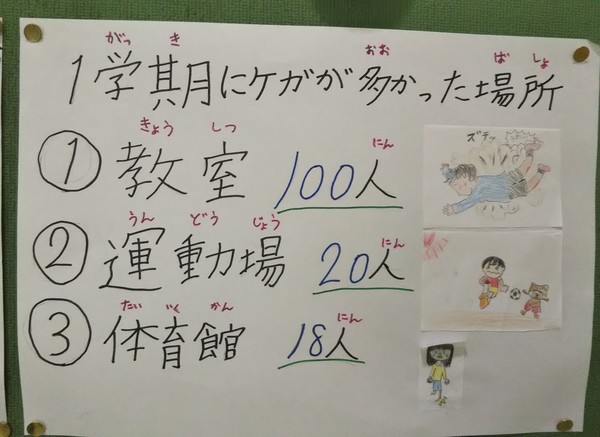 がっ き おお ば しょ
1学期にケガが多かった場所
きょう しつ にん
① 教室 100人
ズテッ
うん どう じょう にん
② 運動場 20人
たい いく かん にん
③ 体育館 18人